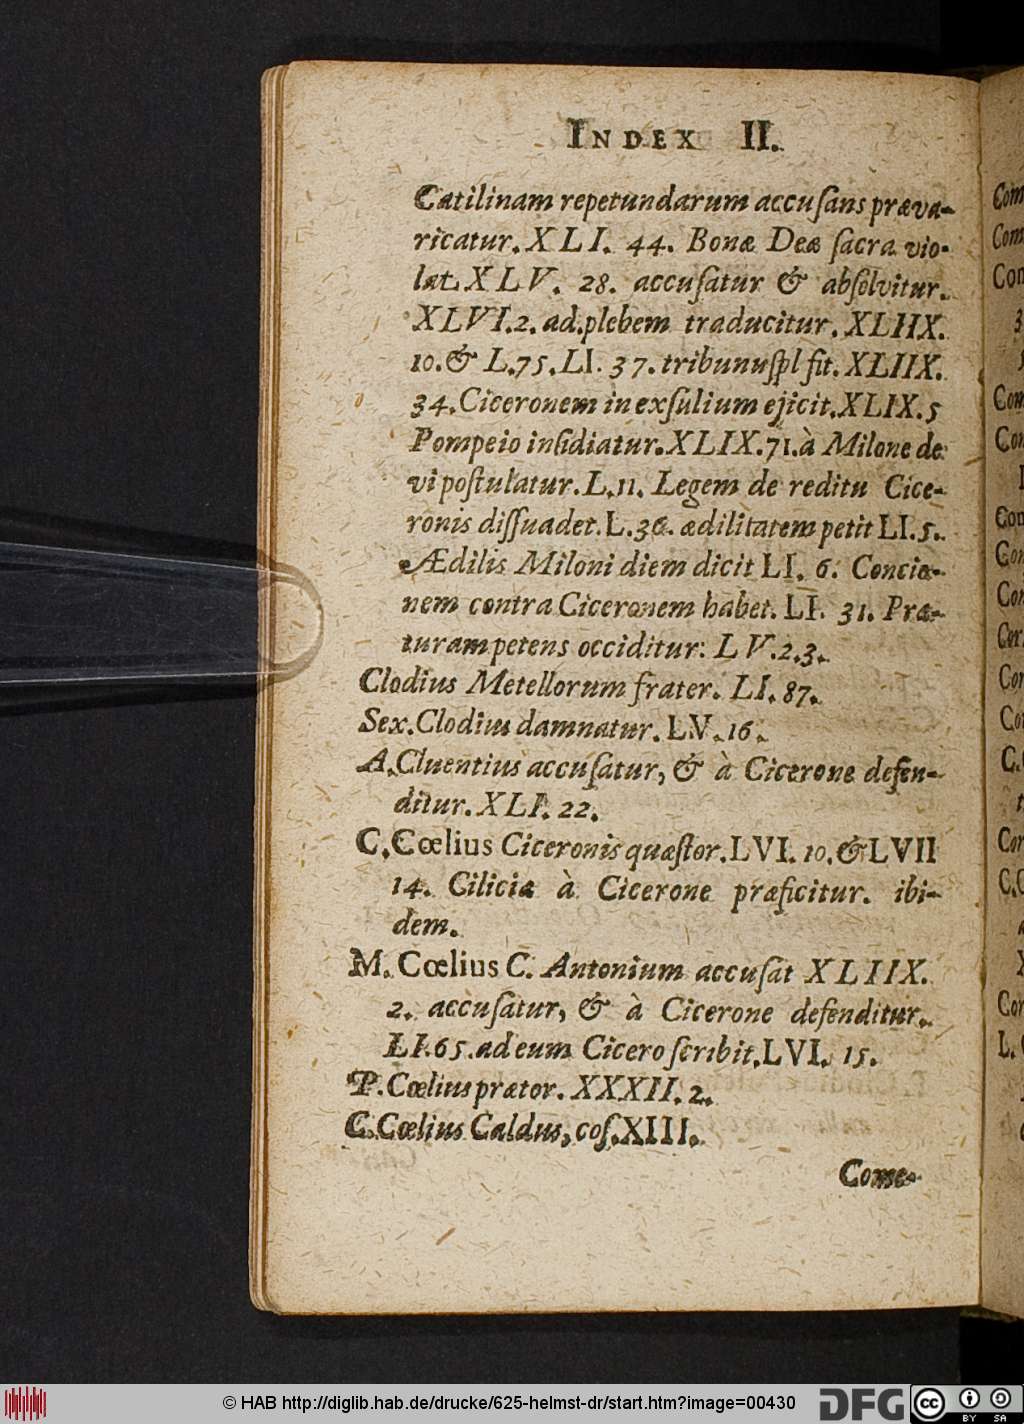 INDEX II.
Catilinam repetundarum accuſans præva-
ricatur. XLI. 44. Bonæ Deæ ſacra vio-
lat. XLV. 28. accuſatur & abſolvitur.
XLVI. 2. ad plebem traducitur. XLIIX.
10. & L. 75. LI. 37. tribunuſ pl fit. XLIIX.
34. Ciceronem in exſulium ejicit. XLIX. 5
Pompeio inſidiatur. XLIX. 71. à Milone de
vi poſtulatur. L. 11. Legem de reditu Cice-
ronis diſſuadet. L. 36. ædilitatem petit LI. 5.
Ædilis Miloni diem dicit LI. 6. Concio-
nem contra Ciceronem habet. LI. 31. Præ-
turam petens occiditur: LV. 2.3.
Clodius Metellorum frater. LI. 87.
Sex. Clodius damnatur. LV. 16.
A. Cluentius accuſatur, & à Cicerone defen-
ditur. XLI. 22.
C. Cœlius Ciceronis quæſtor. LVI. 10. & LVII
14. Ciliciæ à Cicerone præficitur. ibi-
dem.
M. Cœlius C. Antonium accuſat XLIIX.
2. accuſatur, & à Cicerone defenditur.
LI. 65. ad eum Cicero ſcribit, LVI. 15.
P. Cœlius prætor. XXXII. 2.
C. Cœlius Caldus, coſ. XIII.
Come-
© HAB http://diglib.hab.de/drucke/625-helmst-dr/start.htm?image=00430
DFG
cc BY SA